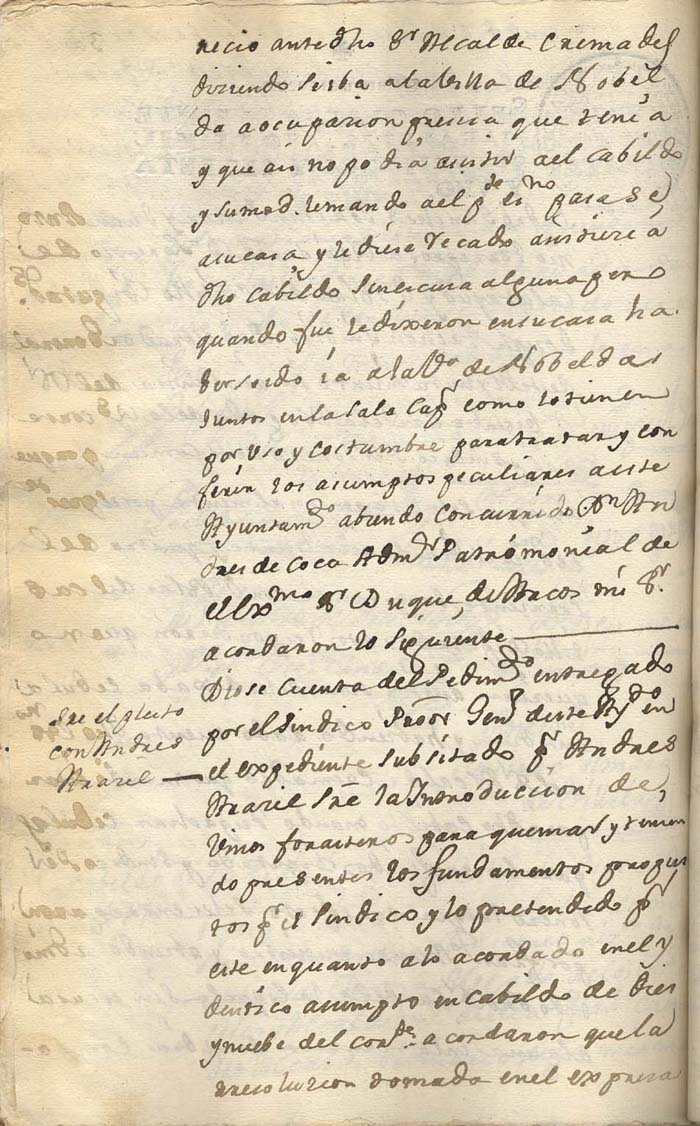 necio ante dho Sr Alcalde Cremades
diziendo se iba a la Villa de Nobel
da a ocupazion presisa que tenia
y que asi no podia asistir a el Cabildo
y su md. remando a el pte esno pasase
a su casa y le diese recado asistiere a
dho Cabildo sin escusa alguna pero
quando fue le dixeron en su casa ha
berse ido ia a la Va de Nobelda
Juntos en la Sala Capr como lo tienen
por uso y costumbre para tratar y con
ferir los asumptos peculiares a este
Ayuntamto abiendo concurrido Dn An
dres de Coca Admr Patrimonial de
el Exmo Sr Duque de Arcos mi Sr
acordaron lo siguiente
Diose Cuenta del Pedimto entregado
por el Sindico Pror Genl de este Aydo en
Sre el pleito
con Andres
Araciel
el expediente subsitado pr Andres
Araciel Sre la Introduccion de
Vinos forasteros para quemar y tenien
do presentes los fundamentos propues
tos pr el Sindico y lo pretendido pr
este en quanto a lo acordado en el y
dentico asumpto en Cabildo de dies
y nuebe del corrte acordaron que la
resoluzion tomada en el expresa